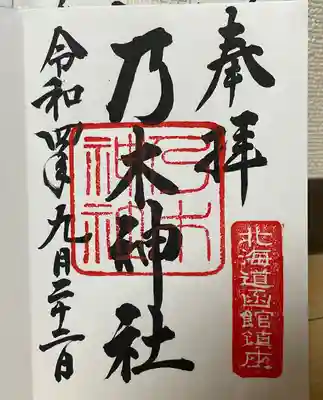 奉拝
北海道函館鎮座
乃木神社
乃木神社
令和四年九月二十二日